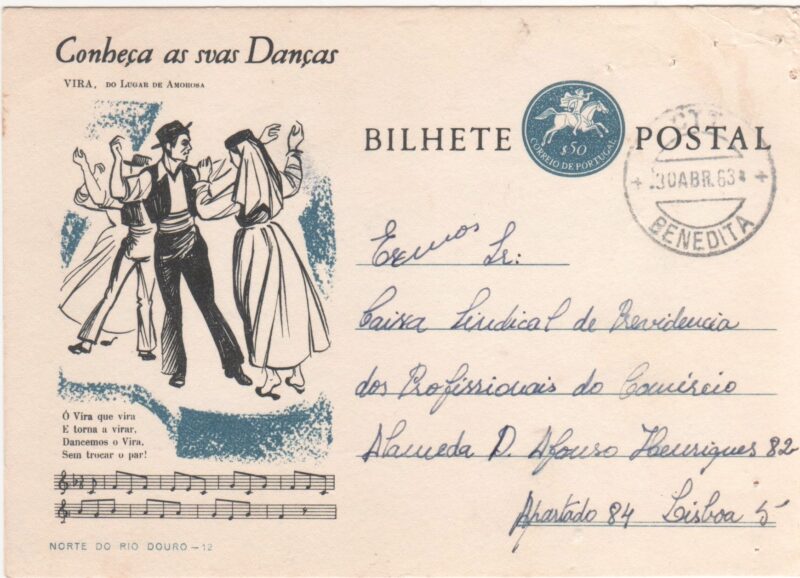 Conheça as suas Danças
VIRA, DO LUGAR DE AMOROSA
BILHETE POSTAL
$50
CORREIO DE PORTUGAL
30 ABR. 63
BENEDITA
Exmos Sr:
Caixa Sindical de Previdencia
dos Profissionais do Comércio
Alameda D. Afonso Henriques 82
Apartado 84 Lisboa 5
Ó Vira que vira
E torna a virar,
Dancemos o Vira,
Sem trocar o par!
NORTE DO RIO DOURO — 12